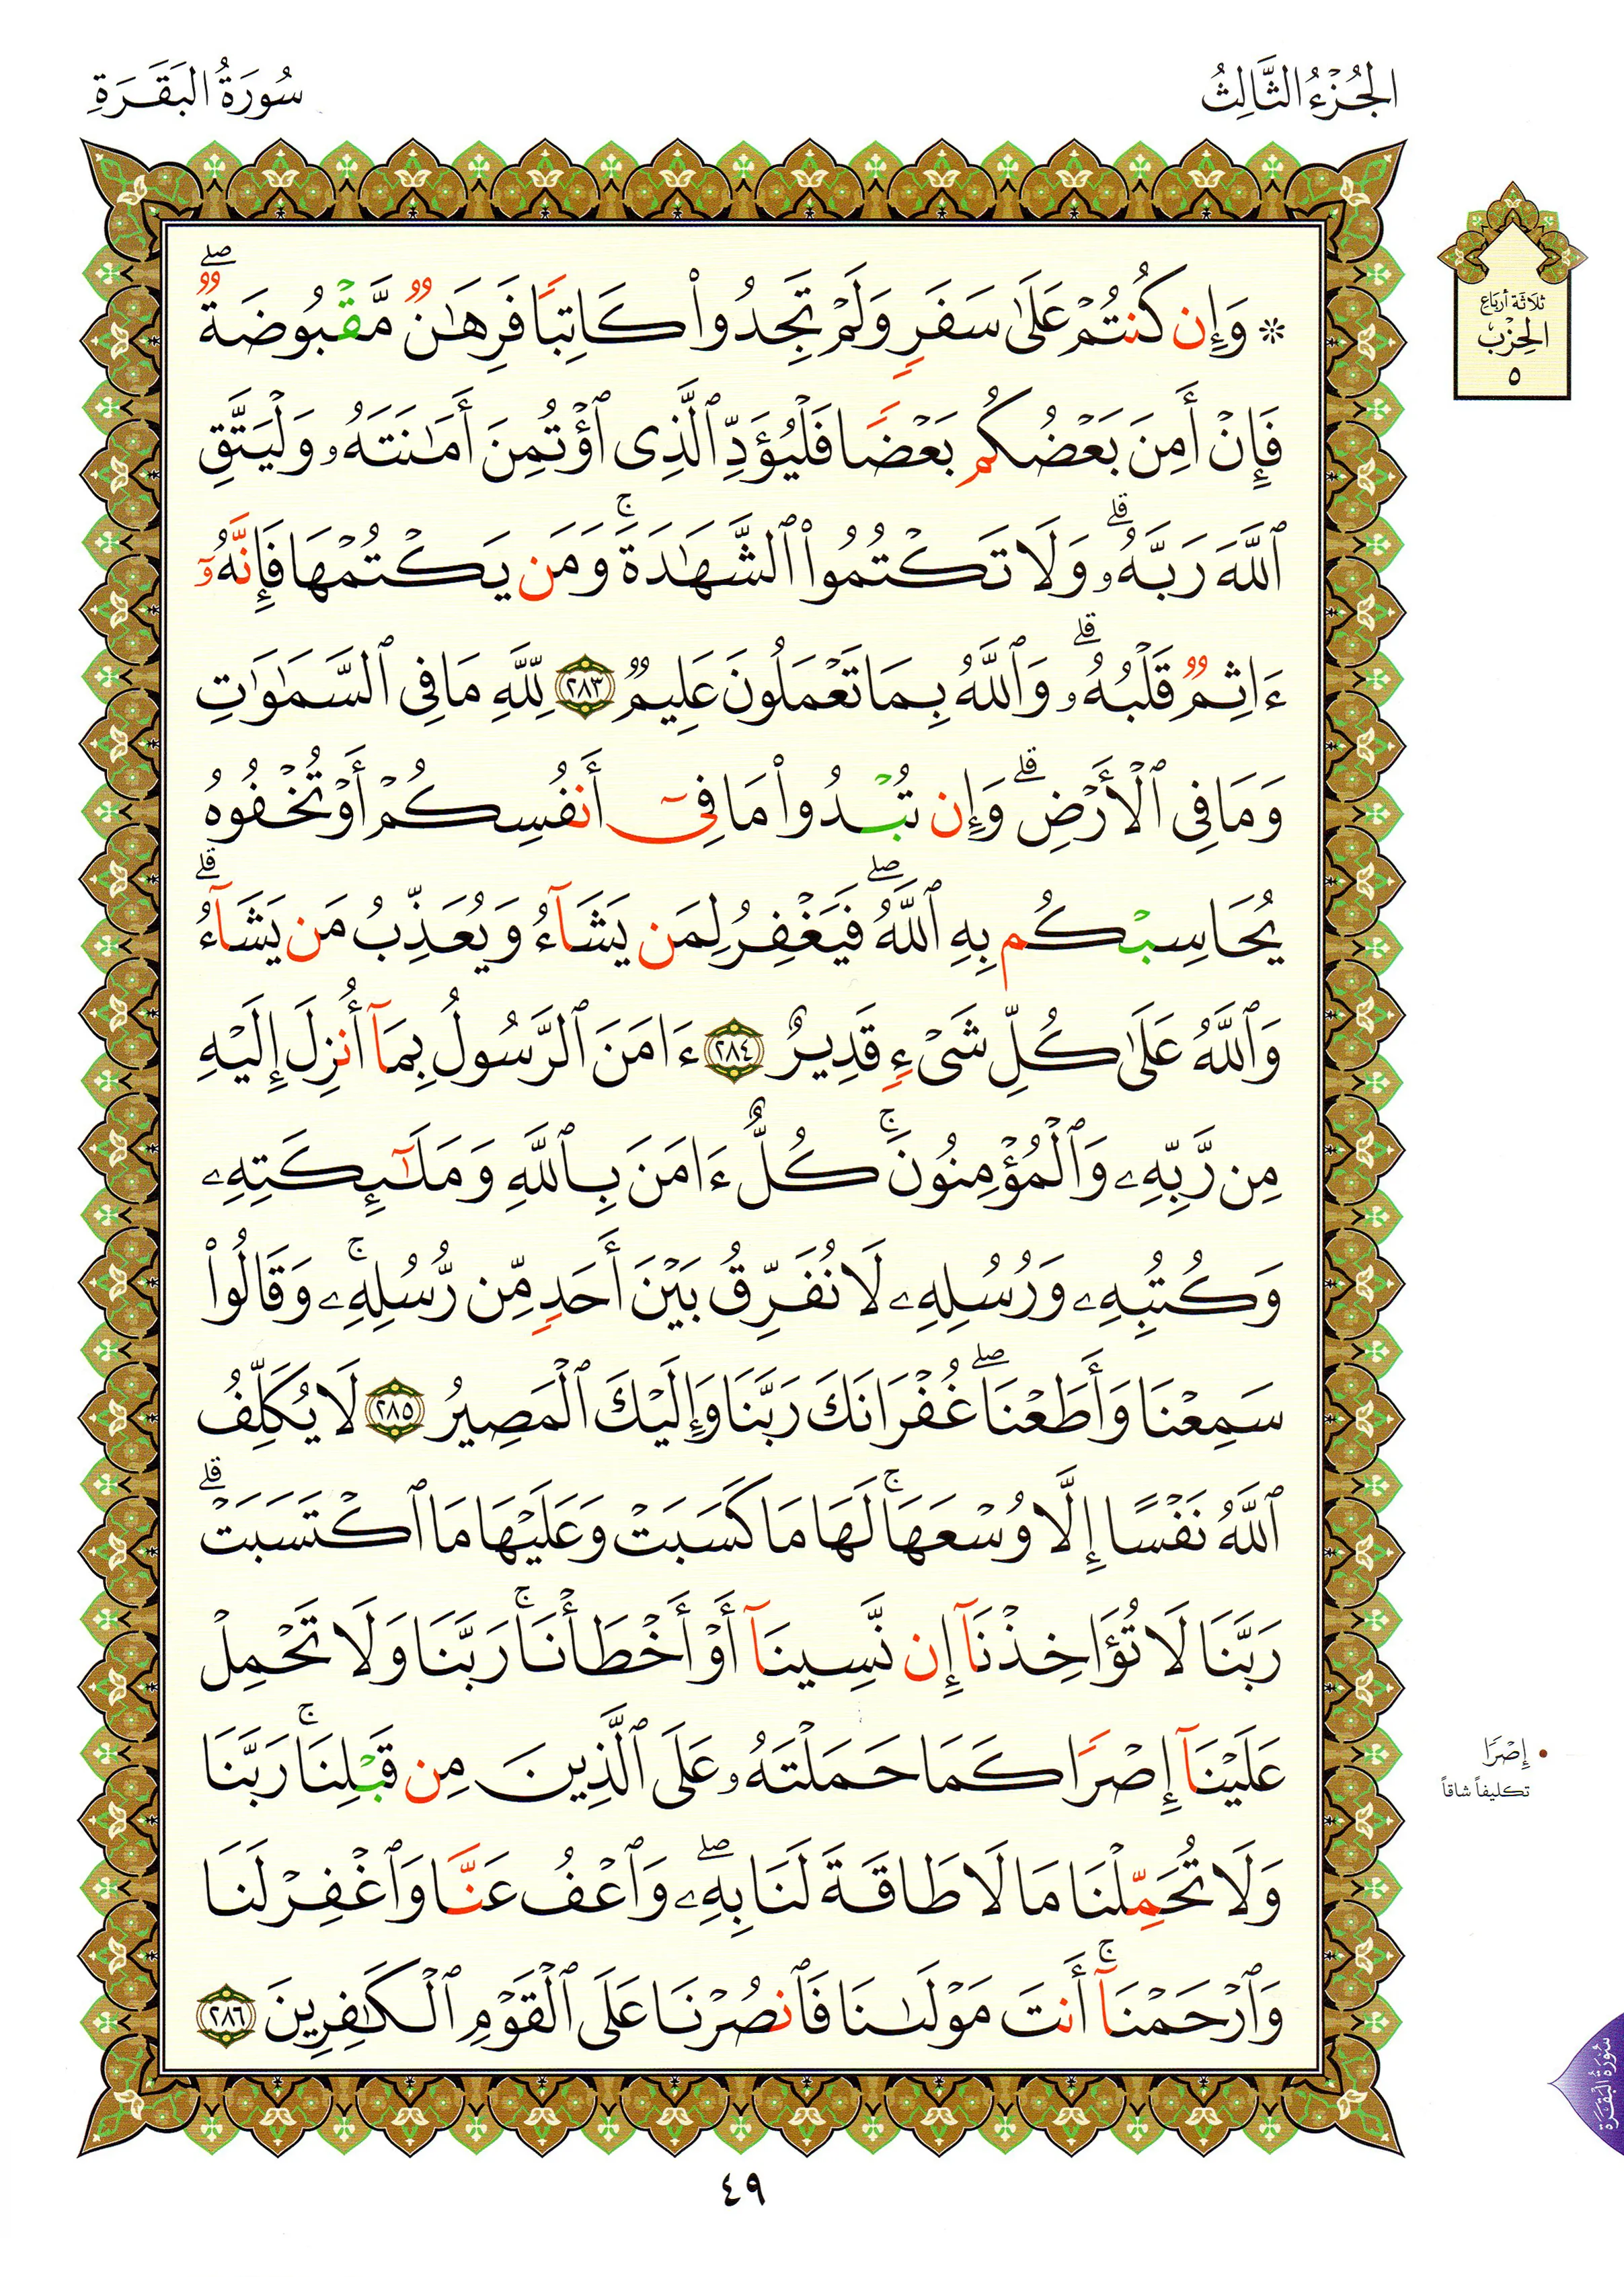 الجُزْءُ الثَّالِثُ
سُورَةُ البَقَرَةِ
ثلاثة أرباع
الحِزْب
٥
۞ وَإِن كُنتُمْ عَلَىٰ سَفَرٍ وَلَمْ تَجِدُوا۟ كَاتِبًا فَرِهَـٰنٌ مَّقْبُوضَةٌ ۖ
فَإِنْ أَمِنَ بَعْضُكُم بَعْضًا فَلْيُؤَدِّ ٱلَّذِى ٱؤْتُمِنَ أَمَـٰنَتَهُۥ وَلْيَتَّقِ
ٱللَّهَ رَبَّهُۥ ۗ وَلَا تَكْتُمُوا۟ ٱلشَّهَـٰدَةَ ۚ وَمَن يَكْتُمْهَا فَإِنَّهُۥٓ
ءَاثِمٌ قَلْبُهُۥ ۗ وَٱللَّهُ بِمَا تَعْمَلُونَ عَلِيمٌ ٢٨٣ لِّلَّهِ مَا فِى ٱلسَّمَـٰوَٰتِ
وَمَا فِى ٱلْأَرْضِ ۗ وَإِن تُبْدُوا۟ مَا فِىٓ أَنفُسِكُمْ أَوْ تُخْفُوهُ
يُحَاسِبْكُم بِهِ ٱللَّهُ ۖ فَيَغْفِرُ لِمَن يَشَآءُ وَيُعَذِّبُ مَن يَشَآءُ ۗ
وَٱللَّهُ عَلَىٰ كُلِّ شَىْءٍ قَدِيرٌ ٢٨٤ ءَامَنَ ٱلرَّسُولُ بِمَآ أُنزِلَ إِلَيْهِ
مِن رَّبِّهِۦ وَٱلْمُؤْمِنُونَ ۚ كُلٌّ ءَامَنَ بِٱللَّهِ وَمَلَـٰٓئِكَتِهِۦ
وَكُتُبِهِۦ وَرُسُلِهِۦ لَا نُفَرِّقُ بَيْنَ أَحَدٍ مِّن رُّسُلِهِۦ ۚ وَقَالُوا۟
سَمِعْنَا وَأَطَعْنَا ۖ غُفْرَانَكَ رَبَّنَا وَإِلَيْكَ ٱلْمَصِيرُ ٢٨٥ لَا يُكَلِّفُ
ٱللَّهُ نَفْسًا إِلَّا وُسْعَهَا ۚ لَهَا مَا كَسَبَتْ وَعَلَيْهَا مَا ٱكْتَسَبَتْ ۗ
رَبَّنَا لَا تُؤَاخِذْنَآ إِن نَّسِينَآ أَوْ أَخْطَأْنَا ۚ رَبَّنَا وَلَا تَحْمِلْ
عَلَيْنَآ إِصْرًا كَمَا حَمَلْتَهُۥ عَلَى ٱلَّذِينَ مِن قَبْلِنَا ۚ رَبَّنَا
وَلَا تُحَمِّلْنَا مَا لَا طَاقَةَ لَنَا بِهِۦ ۖ وَٱعْفُ عَنَّا وَٱغْفِرْ لَنَا
وَٱرْحَمْنَآ ۚ أَنتَ مَوْلَىٰنَا فَٱنصُرْنَا عَلَى ٱلْقَوْمِ ٱلْكَـٰفِرِينَ ٢٨٦
• إِصْرًا
تكليفاً شاقاً
سُورَةُ الْبَقَرَةِ
٤٩